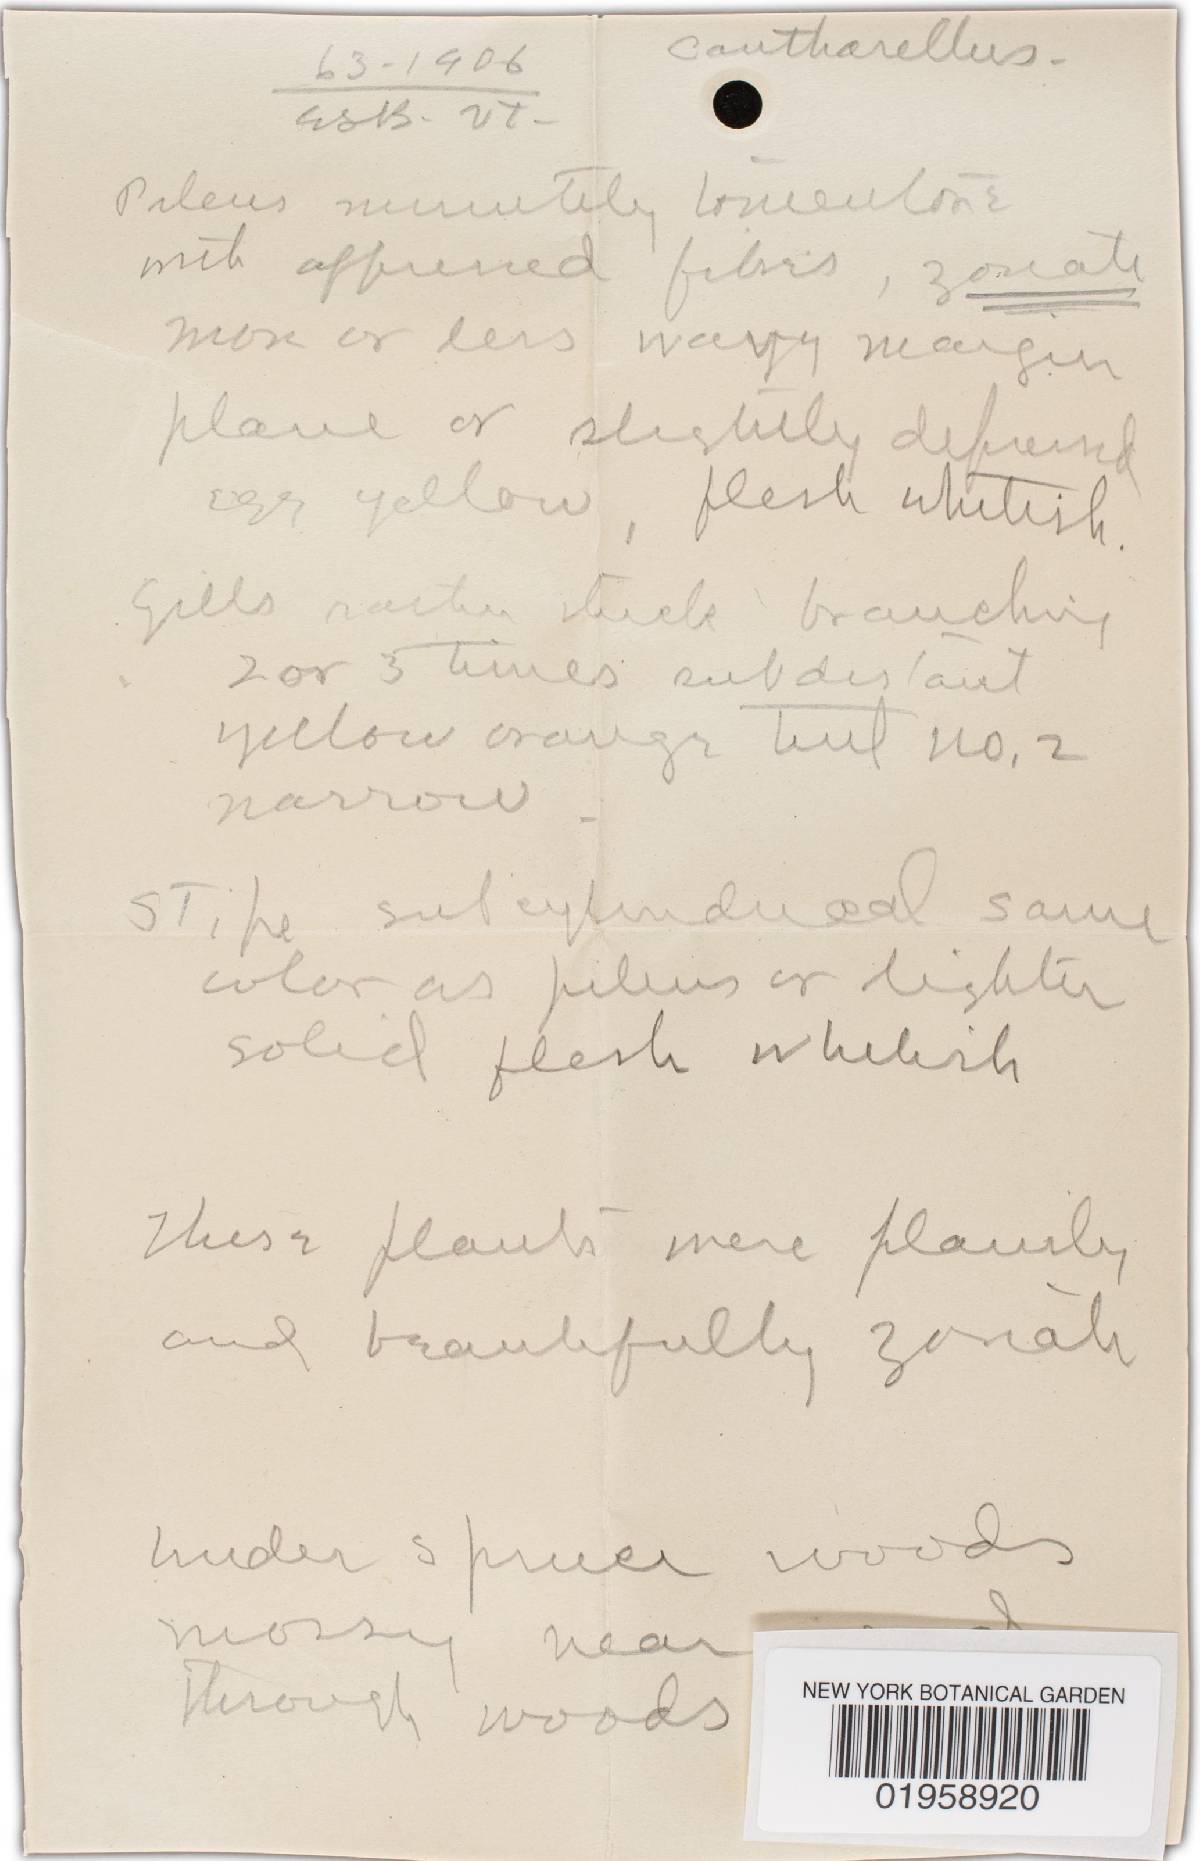 63-1906
GSB. VT-
Cantharellus-
Pileus minutely tomentose
with appressed fibres, zonate
more or less wavy margin
plane or slightly depressed
egg yellow, flesh whitish.
Gills rather thick branching
2 or 3 times subdistant
yellow orange tint no. 2
narrow-
Stipe subcylindrical same
color as pileus or lighter
solid flesh whitish
These plants were plainly
and beautifully zonate
under spruce woods
mossy near
through woods
NEW YORK BOTANICAL GARDEN
01958920